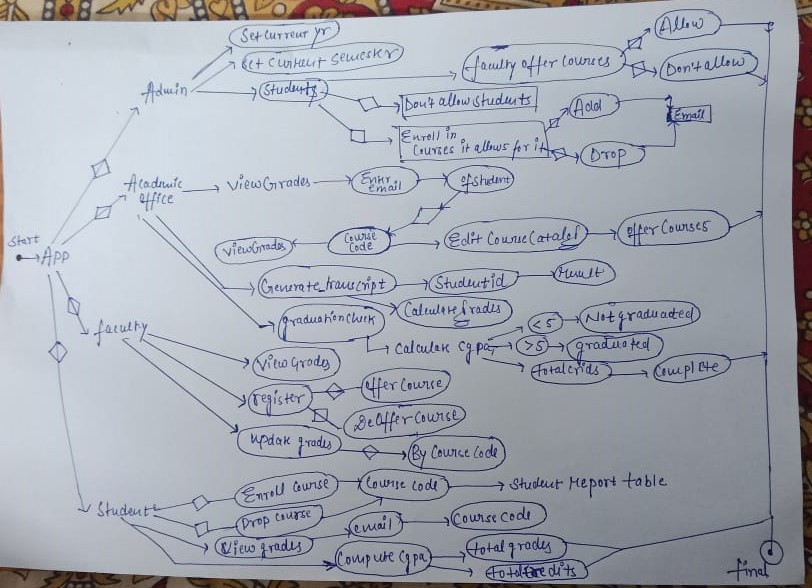 Set current yr
Set current semester
Admin
Students
faculty offer courses
Allow
Don't allow
Don't allow students
Enroll in
courses it allows for it
Add
Drop
Email
Academic
office
View Grades
Enter
email
of student
View Grades
Course
Code
Edit Course Catalog
offer Courses
Start
App
Generate transcript
Student id
result
graduation check
Calculate Grades
Calculate Cgpa
<5
Not graduated
>5
graduated
total crids
Complete
faculty
View Grades
register
offer Course
De offer Course
Update grades
By Course Code
Student
Enroll Course
Course code
Student Report table
Drop course
View grades
email
Course code
Compute Cgpa
total grades
total credits
final